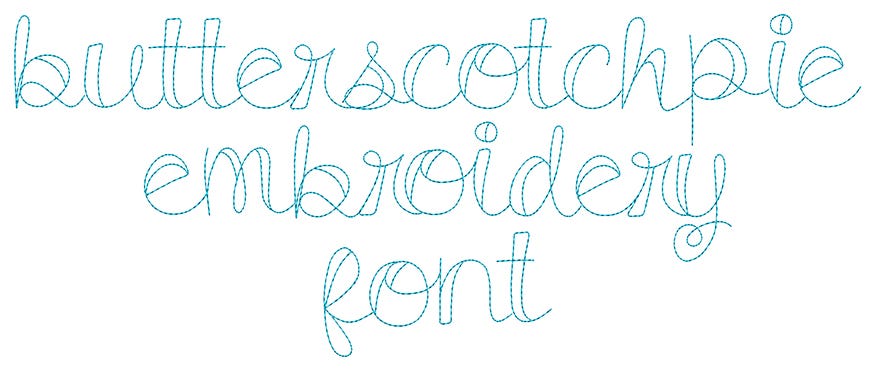 butterscotchpie
embroidery
font